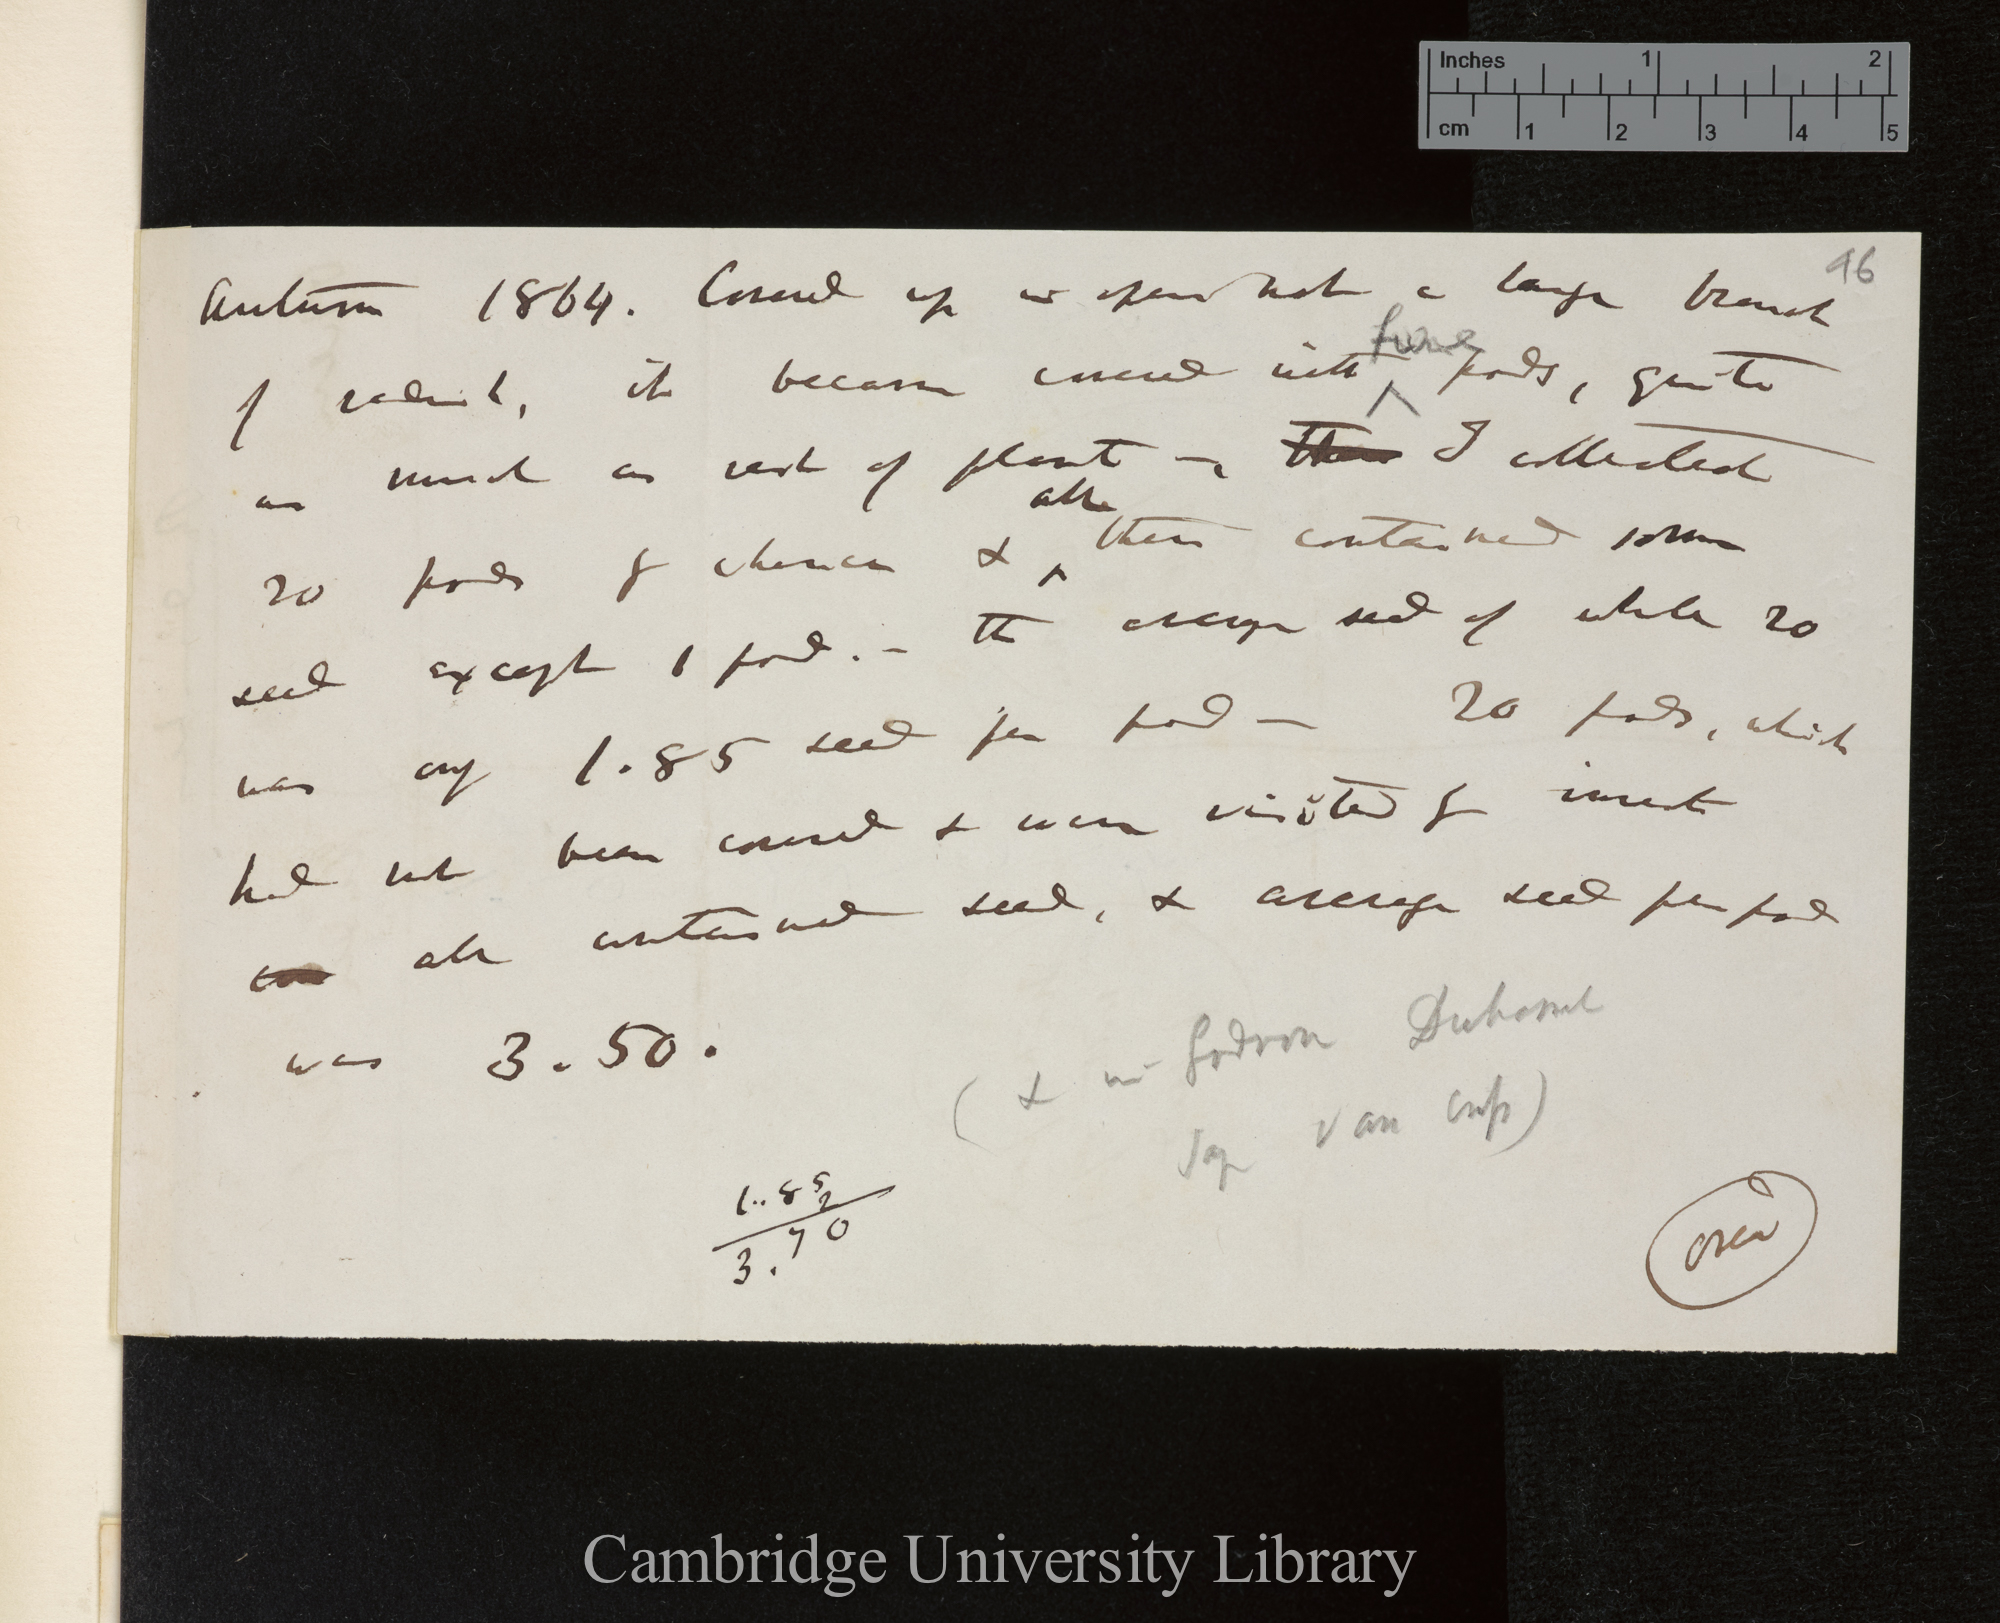 Inches 1 2
cm 1 2 3 4 5
46
Autumn 1864. Covered up in open net a large branch
of radish, it became covered with fine pods, quite
as much as rest of plant —, I collected
20 pods by chance & all these contained some
seed except 1 pod. — The average seed of whole 20
was only 1.85 seed per pod — 20 pods, which
had not been covered & were visited by insects
all contained seed, & average seed per pod
was 3.50.
(& in Godron Duhamel
Van
1.85
2
3.70
over
Cambridge University Library